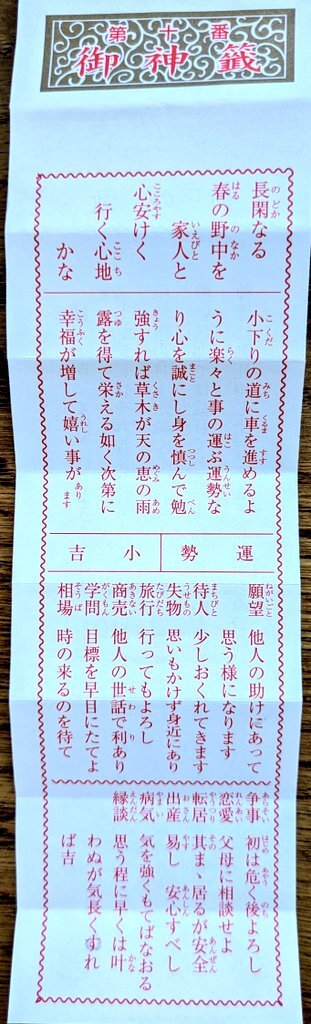 第十番
御神籤
長閑なる
春の野中を
家人と
心安けく
行く心地
かな
小下りの道に車を進めるよ
うに楽々と事の運ぶ運勢な
り心を誠にし身を慎んで勉
強すれば草木が天の恵の雨
露を得て栄える如く次第に
幸福が増して嬉い事が有ます
運勢
小吉
願望 他人の助けにあって
思う様になります
待人 少しおくれてきます
失物 思いもかけず身近にあり
旅行 行ってもよろし
商売 他人の世話で利あり
学問 目標を早目にたてよ
相場 時の来るのを待て
争事 初は危く後よろし
恋愛 父母に相談せよ
転居 其まゝ居るが安全
出産 易し 安心すべし
病気 気を強くもてばなおる
縁談 思う程に早くは叶
わぬが気長くすれ
ば吉